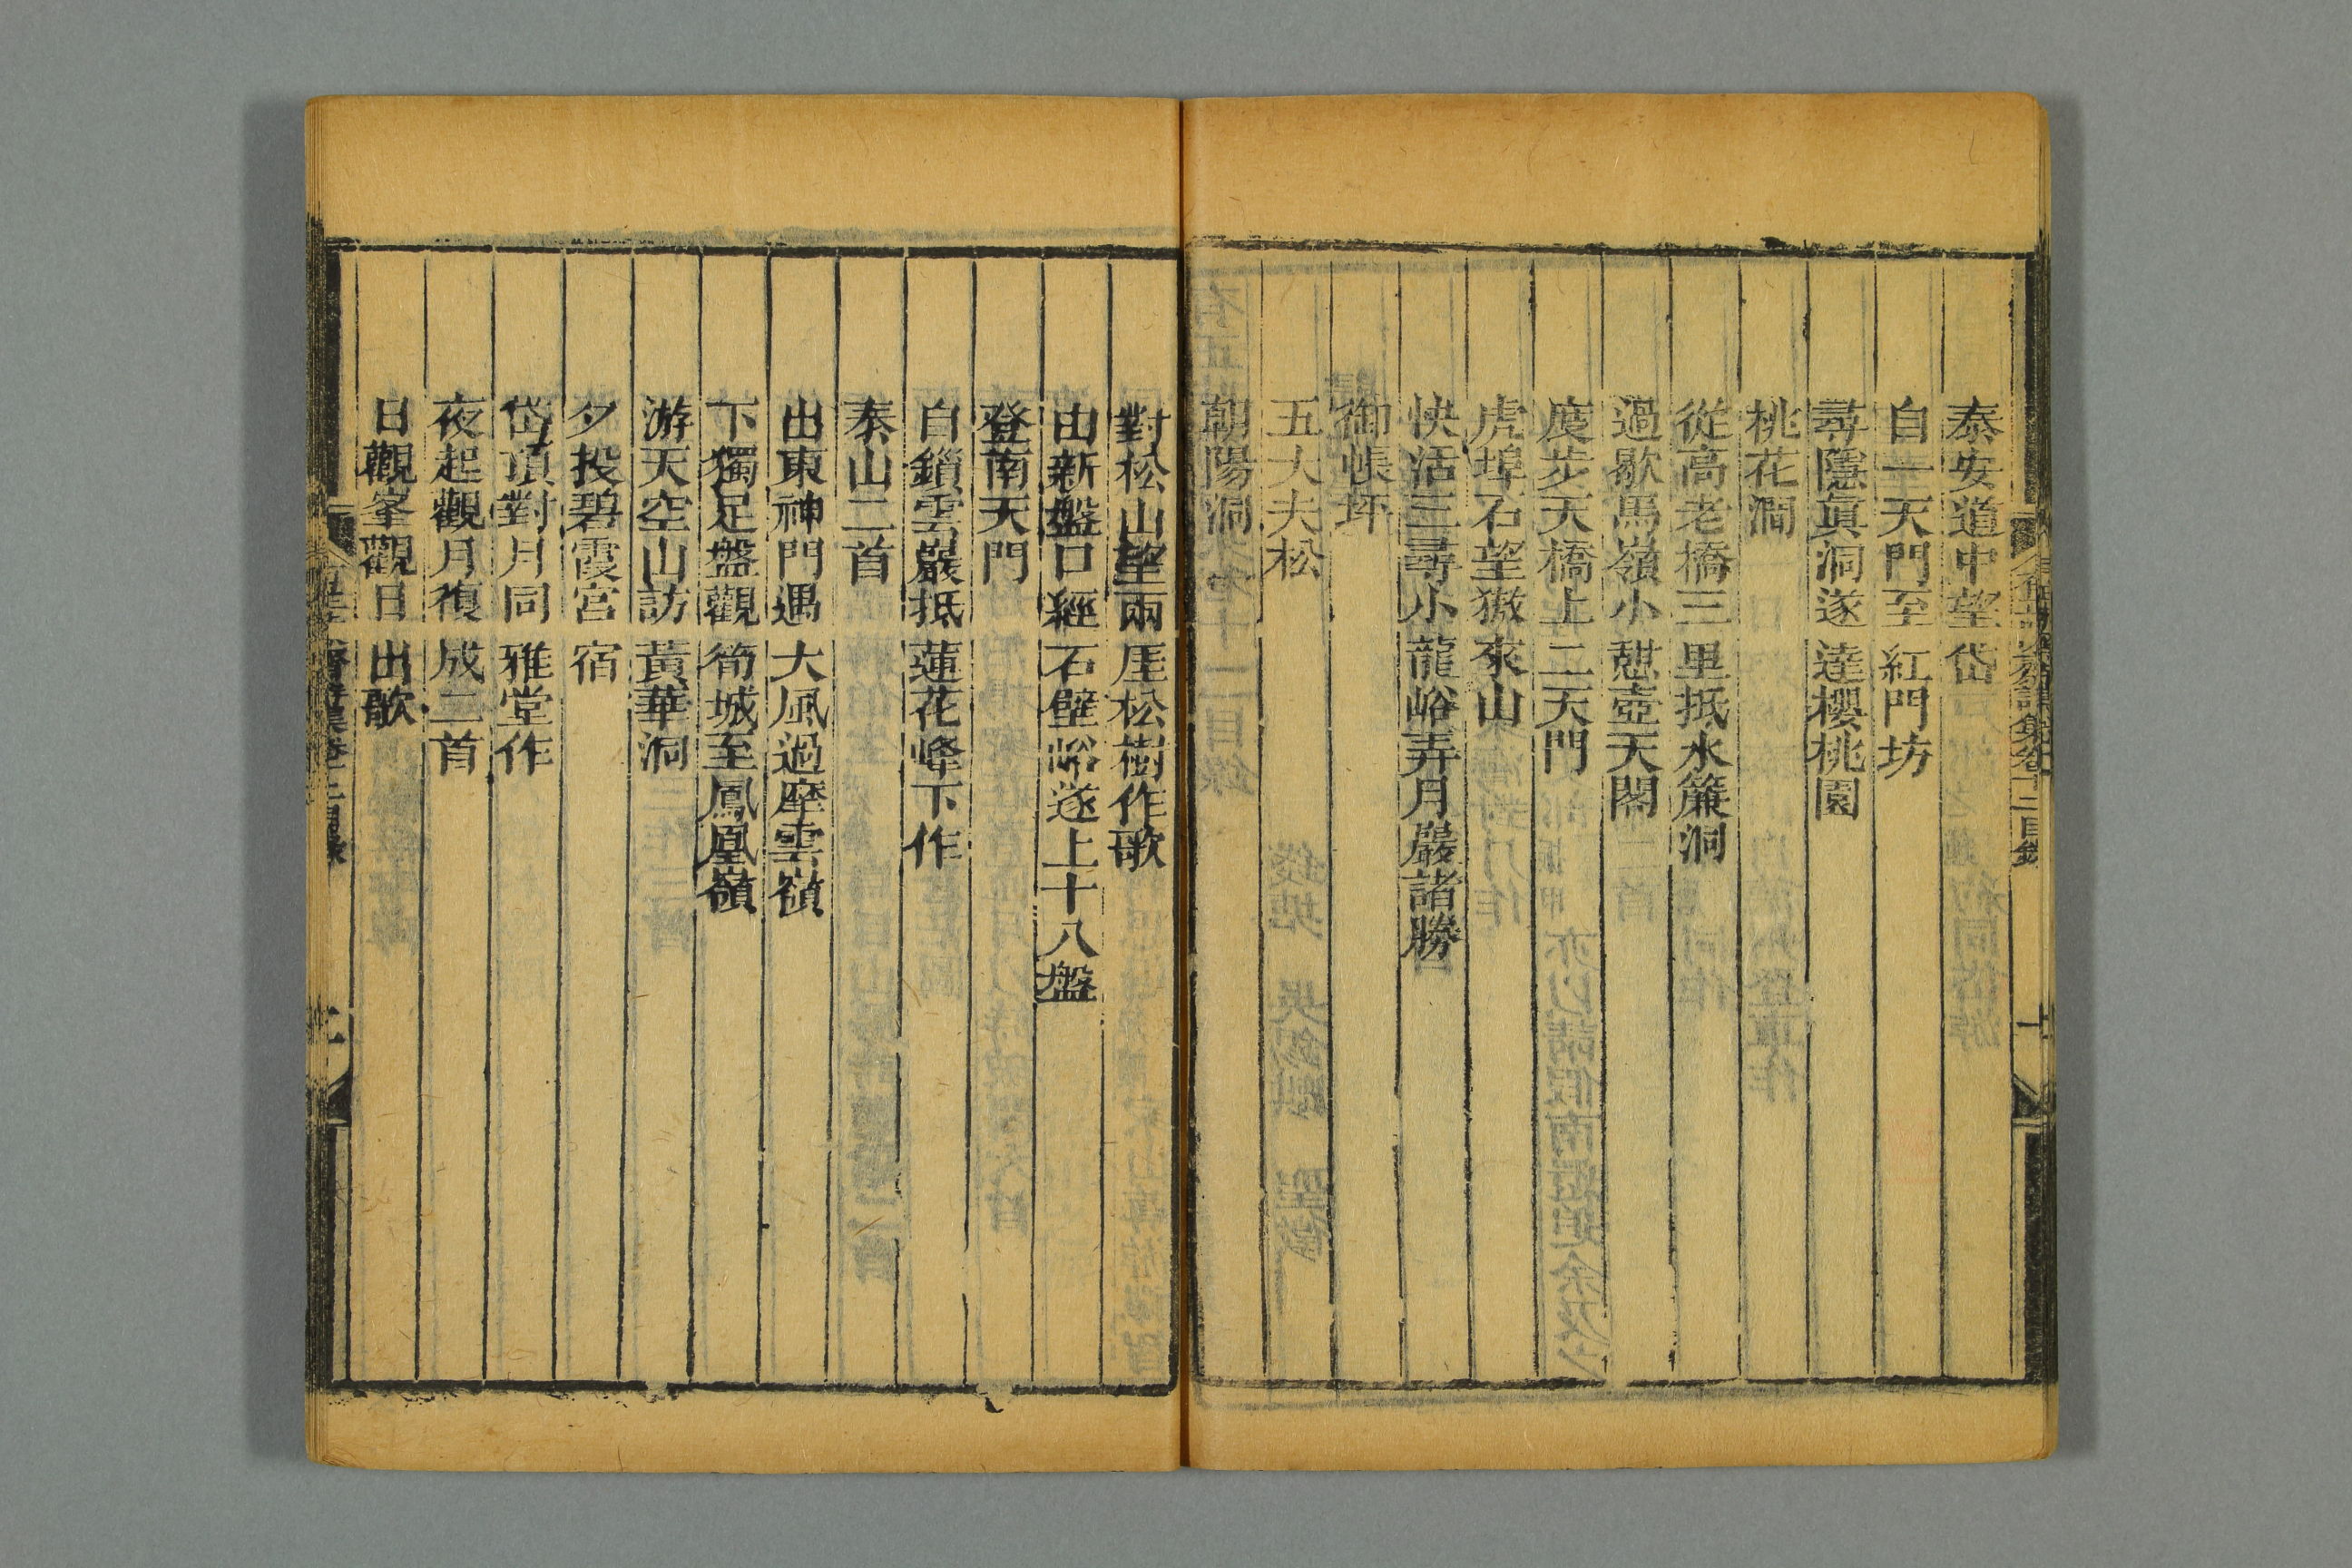 泰安道中望岱
自一天門至紅門坊
尋隱眞洞遂達櫻桃園
桃花澗
從高老橋三里抵水簾洞
過歇馬嶺小憇壺天閣
度步天橋上二天門
虎埠石望嶽來山
快活三尋小龍峪弄月巖諸勝
御帳坪
五大夫松
朝陽洞
對松山望兩厓松樹作歌
由新盤口經石壁峪遂上十八盤
登南天門
白鎖雲巖抵蓮花峰下作
泰山二首
出東神門遇大風過摩雲嶺
下獨足盤觀筍城至鳳凰嶺
游天空山訪黃華洞
夕投碧霞宮宿
岱頂對月同雅堂作
夜起觀月復成二首
日觀峯觀日出歌